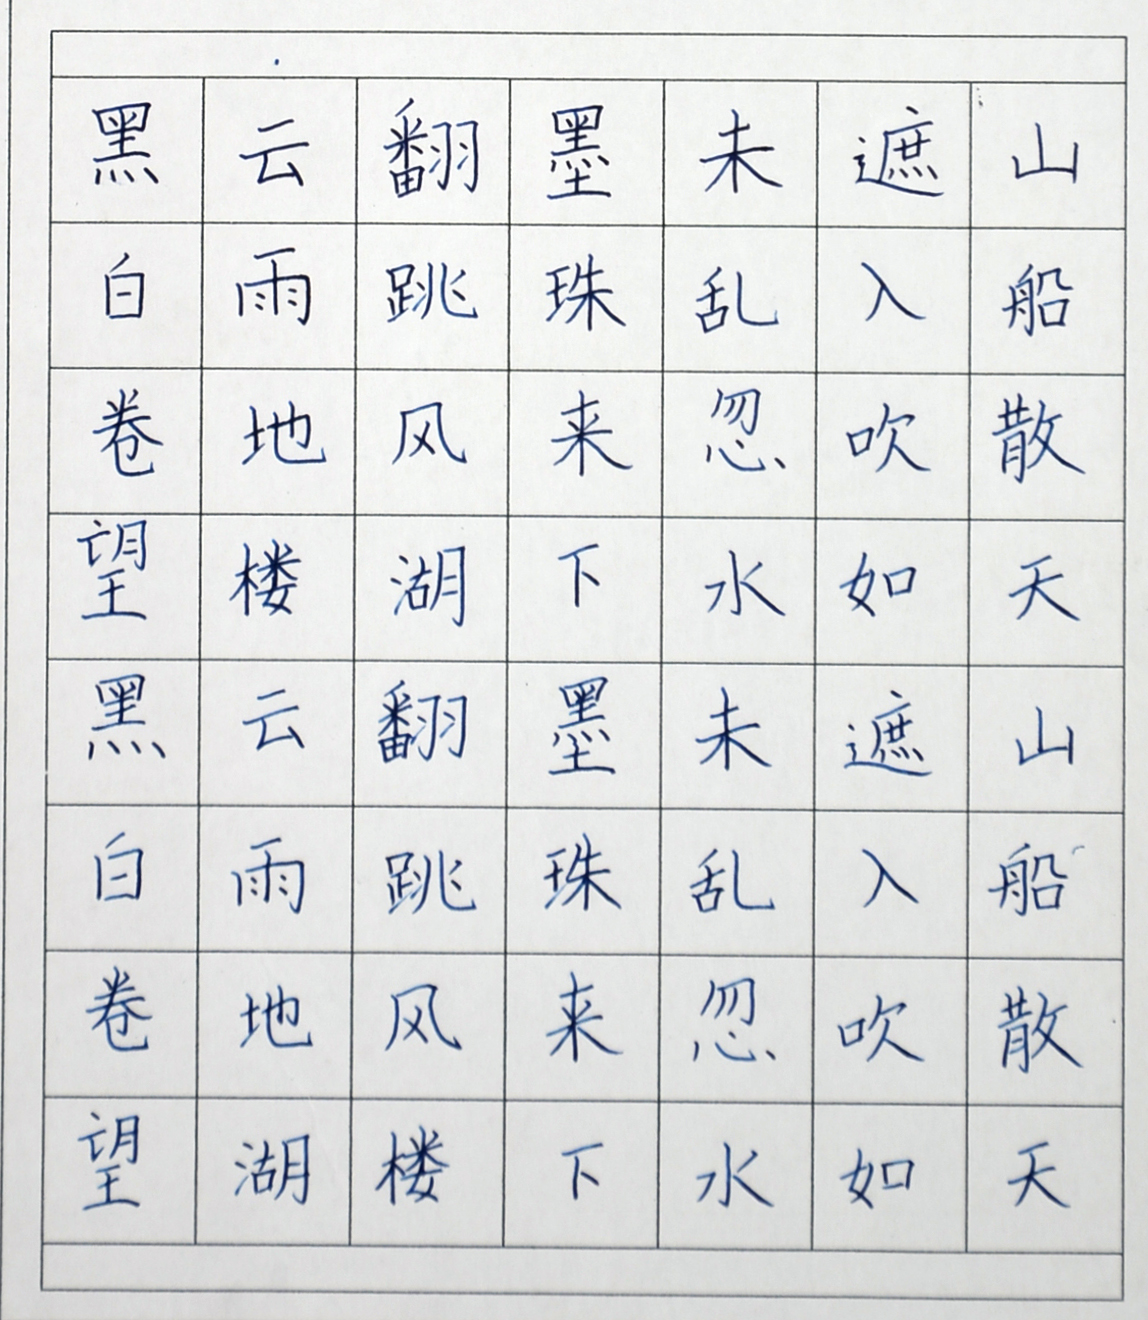 黑云翻墨未遮山
白雨跳珠乱入船
卷地风来忽吹散
望楼湖下水如天
黑云翻墨未遮山
白雨跳珠乱入船
卷地风来忽吹散
望湖楼下水如天